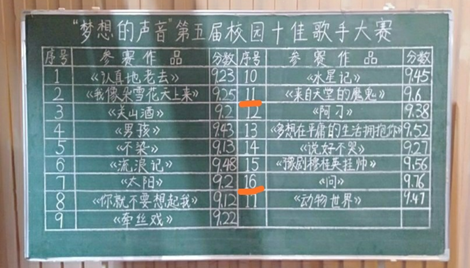 "梦想的声音"第五届校园十佳歌手大赛
序号 参赛作品 分数 序号 参赛作品 分数
1 《认真地老去》 9.23 10 《水星记》 9.45
2 《我像朵雪花天上来》 9.25 11 《来自天堂的魔鬼》 9.6
3 《关山酒》 9.2 12 《阿刁》 9.38
4 《男孩》 9.43 13 《多想在平庸的生活拥抱你》 9.52
5 《不染》 9.13 14 《说好不哭》 9.27
6 《流浪记》 9.48 15 《豫剧穆桂英挂帅》 9.56
7 《太阳》 9.2 16 《问》 9.76
8 《你就不要想起我》 9.12 17 《动物世界》 9.47
9 《牵丝戏》 9.22